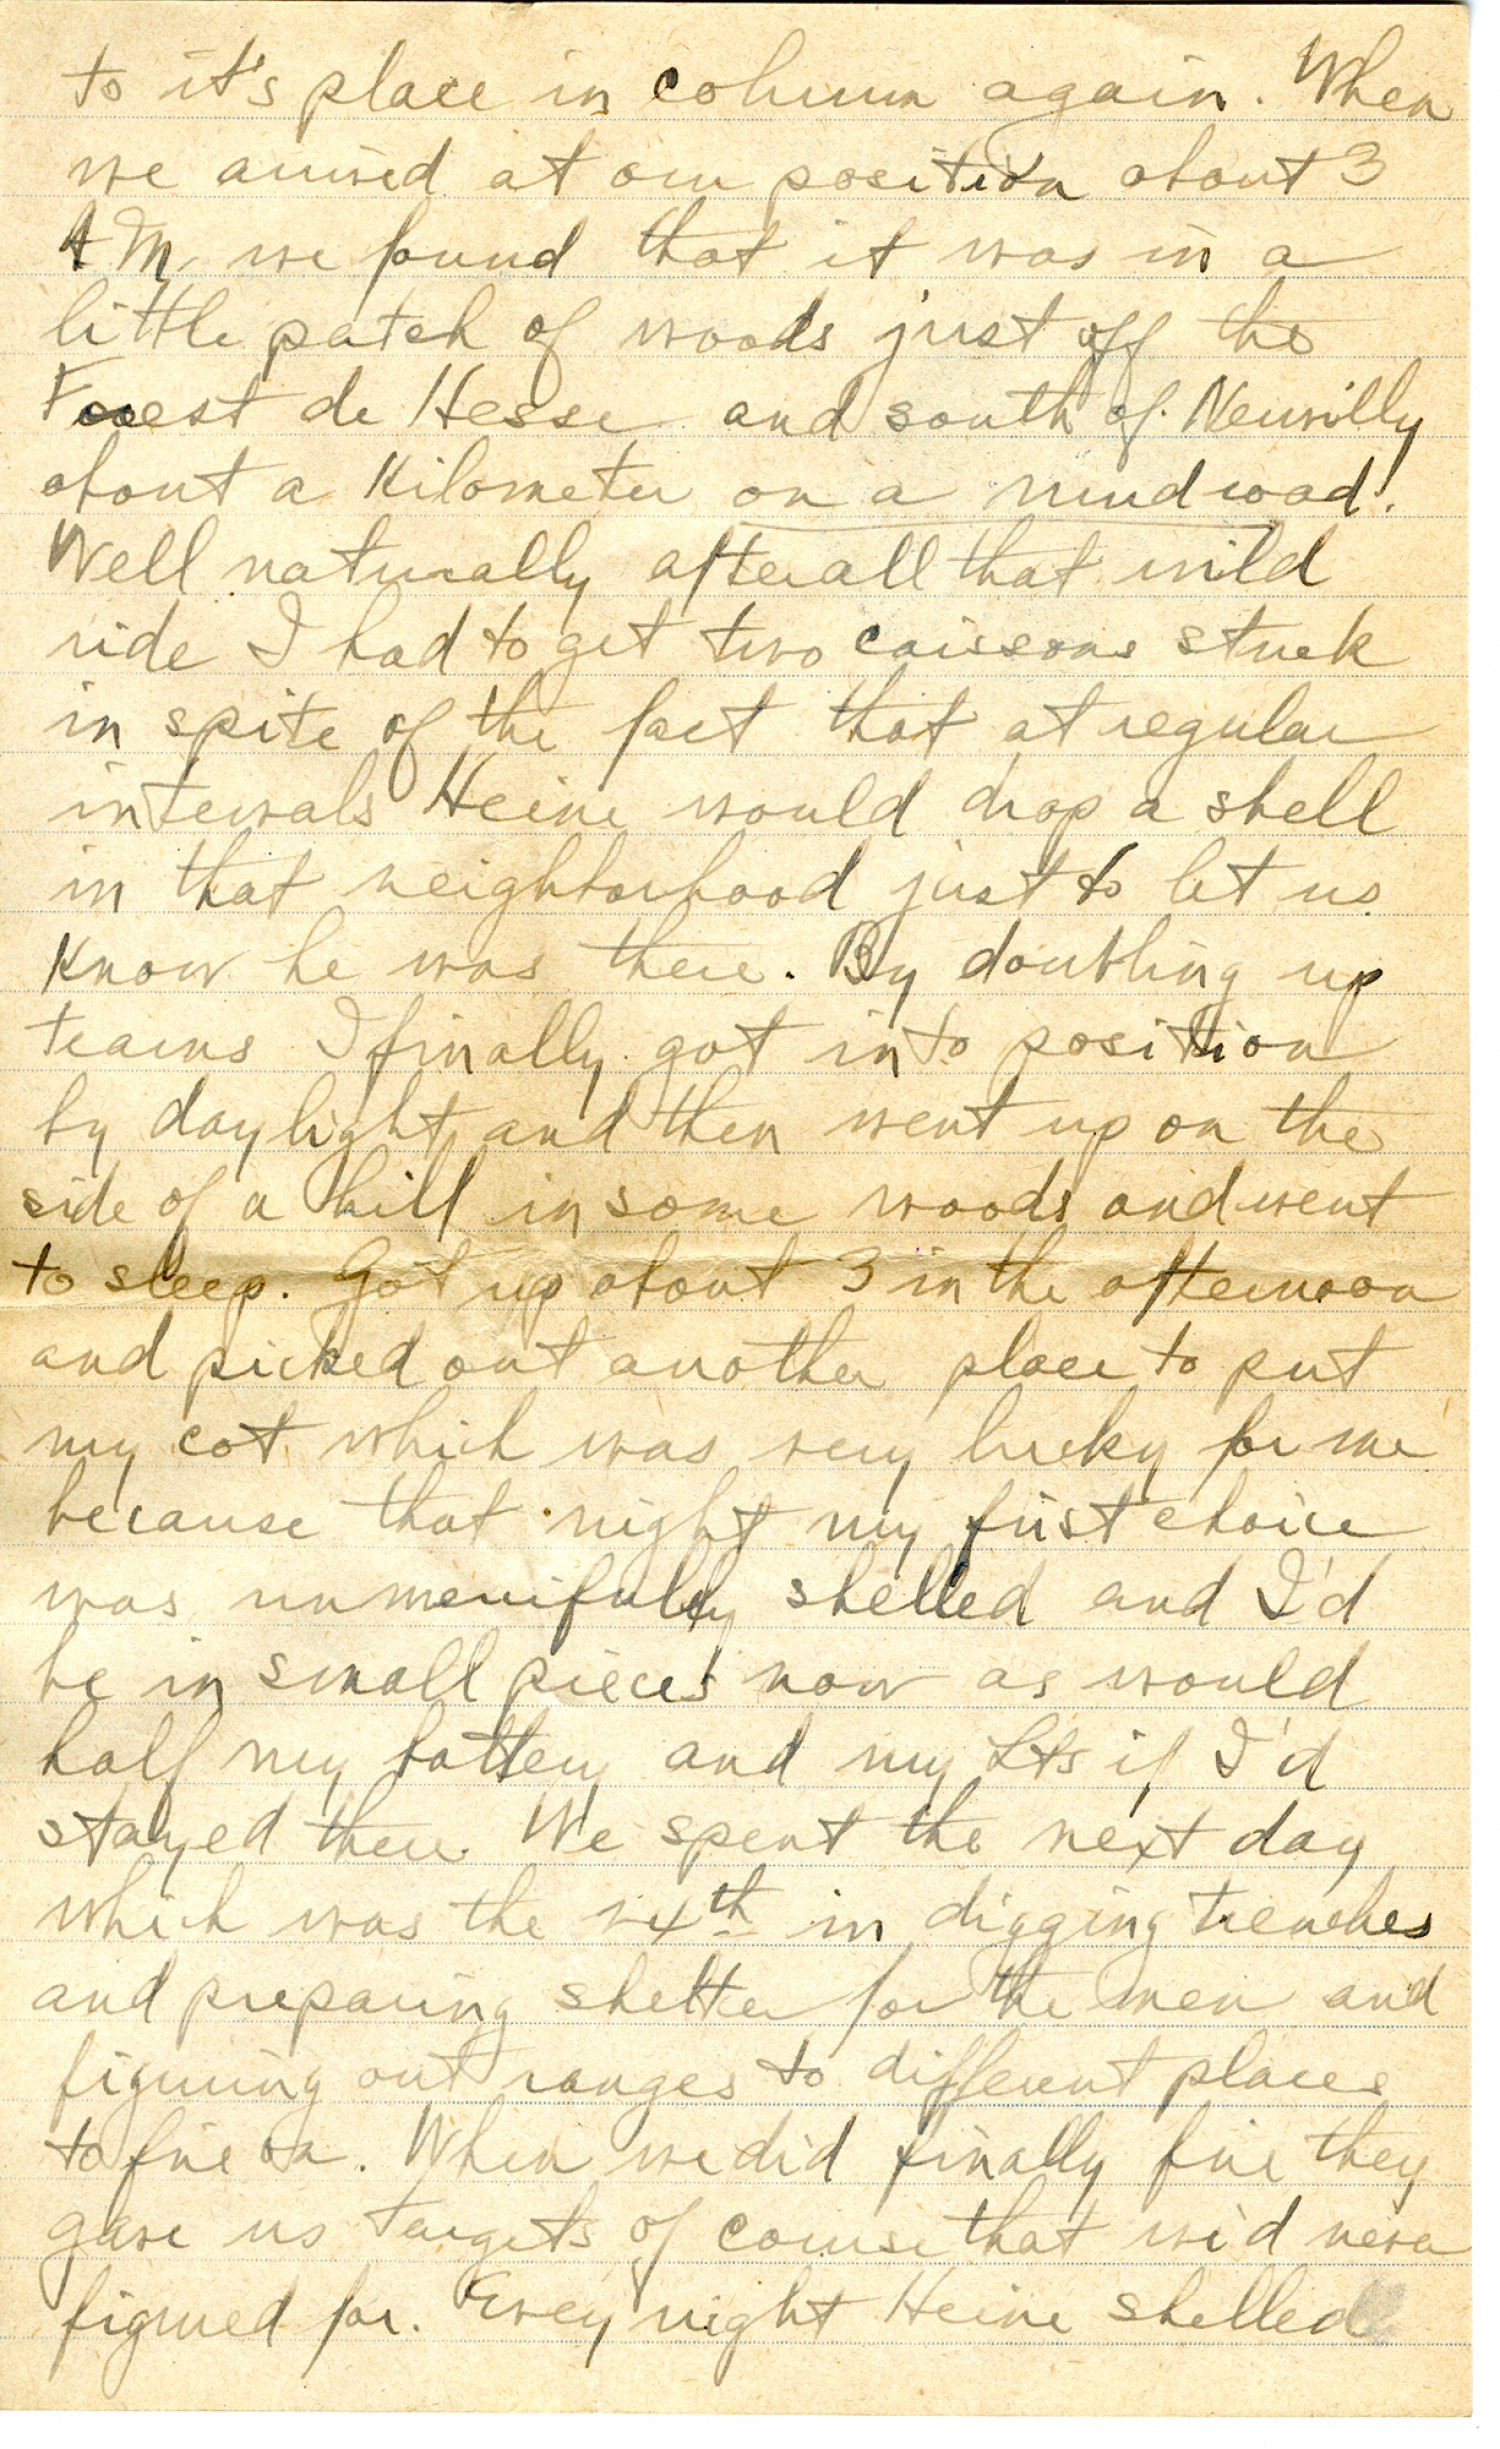 to it's place in column again. When
we arrived at our position about 3
AM, we found that it was in a
little patch of woods just off the
Forest de Hesse and south of Neuvilly
about a Kilometer on a mud road!
Well naturally after all that wild
ride I had to get two caissons stuck
in spite of the fact that at regular
intervals Heine would drop a shell
in that neighborhood just to let us
Know he was there. By doubling up
teams I finally got into position
by daylight and then went up on the
side of a hill in some woods and went
to sleep. Got up about 3 in the afternoon
and picked out another place to put
my cot which was very lucky for me
because that night my first choice
was unmercifully shelled and I'd
be in small pieces now as would
half my battery and my Lts if I'd
stayed there. We spent the next day
which was the 24th in digging trenches
and preparing shelter for the men and
figuring out ranges to different places
to fire on. When we did finally fire they
gave us targets of course that we'd never
figured for. Every night Heine shelled